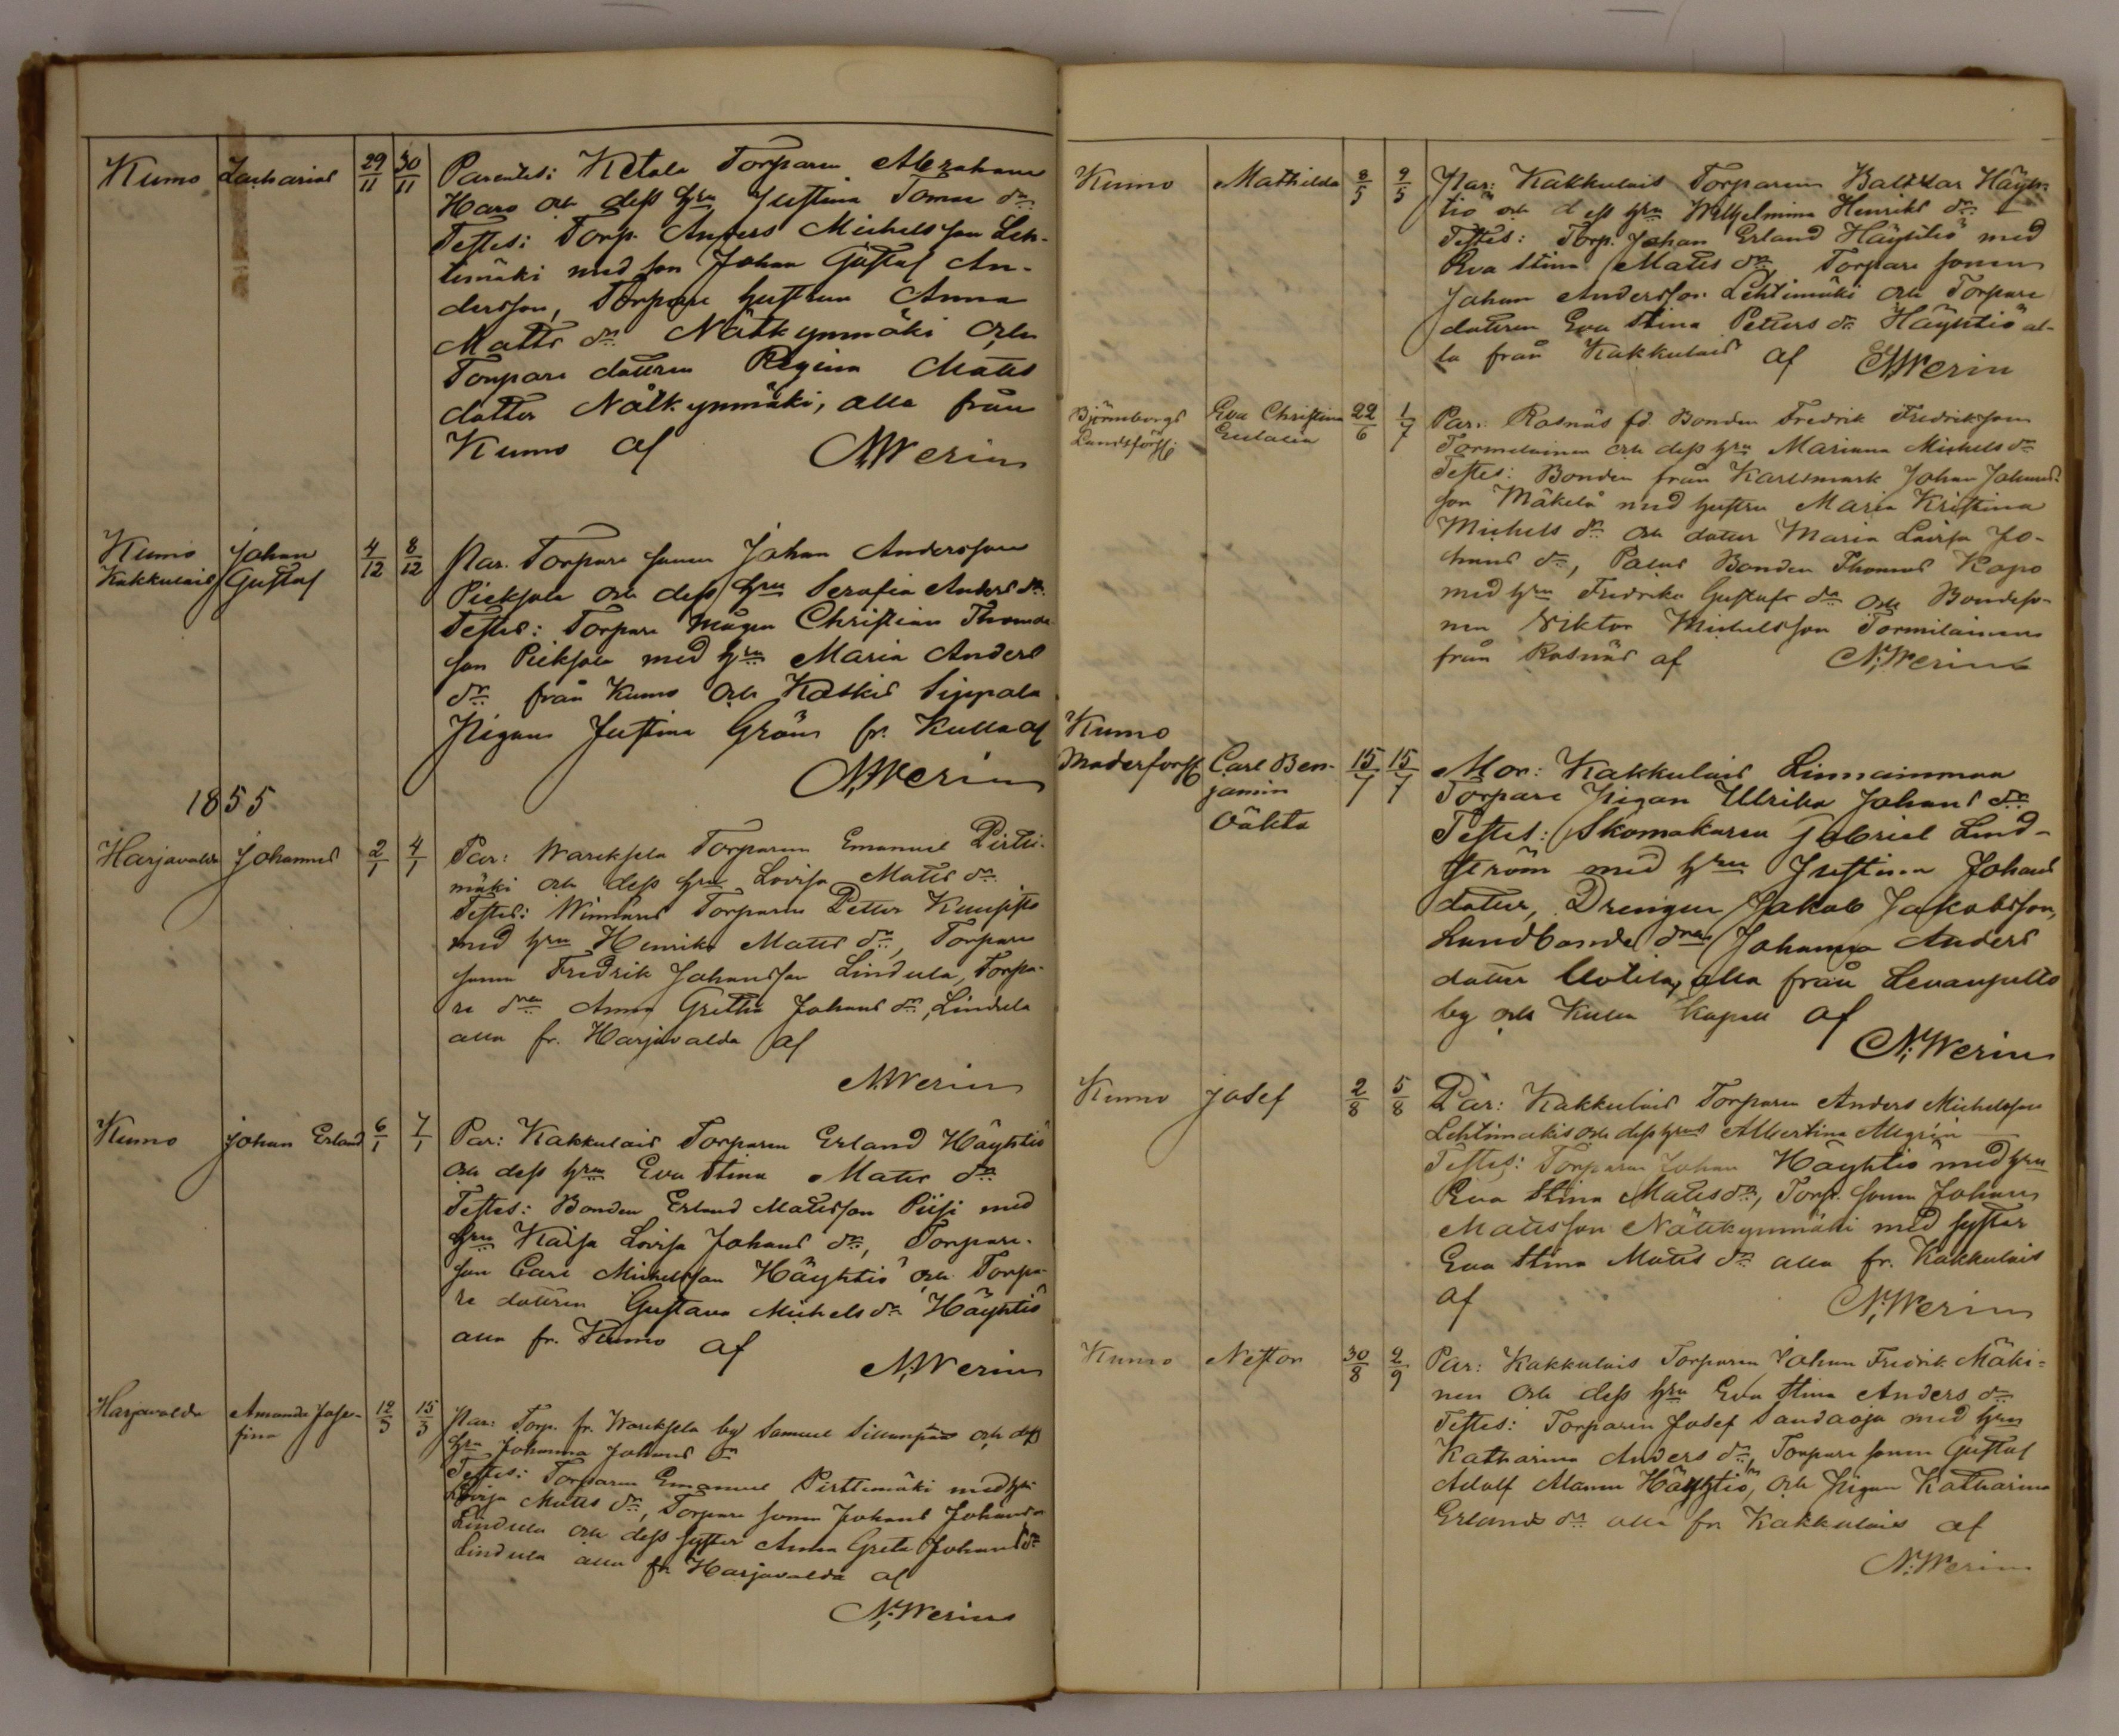 Kumo Zacharias 29/11 30/11 Parentes: Ketola Torparen Abraham
Haro och dess hru Justina Tomas dr
Testes: Torp. Anders Michelsson Leh-
timäki med son Johan Gustaf An-
dersson, Torpare hustrun Anna
Matts dr Nätkynmäki och
Torpare dottren Regina Matts
dotter Nätkynmäki, alla från
Kumo af N. Werin
Kumo Johan 4/12 8/12 Par. Torpare sonen Johan Andersson
Kakkulais Gustaf
Pieksala och dess hru Serafia Anders dr
Testes: Torpare mågen Christian Thomas
son Pieksala med hru Maria Anders
dr från Kumo och Koskis Sippala
Pigan Justina Gröns fr. Kulla af
N. Werin
1855
Harjavalda Johannes 2/1 4/1 Par: Wareksela Torparen Emanuel Pirtti-
mäki och dess hru Lovisa Matts dr
Testes: Torparen Petter Kuusisto
med hru Henrika Matts dr, Torpare
sonen Fredrik Johansson Lindula, Torpa-
re dren Anna Gretha Johans dr, Lindula
alla fr. Harjavalda af
N. Werin
Kumo Johan Erland 6/1 7/1 Par: Kakkulais Torparen Erland Häyhtiö
och dess hru Eva Stina Matts dr
Testes: Bonden Erland Mattsson Piisi med
hru Kaisa Lovisa Johans dr, Torpare-
son Carl Michelsson Häyhtiö och Torpa-
re dottren Gustava Michels dr Häyhtiö
alla fr. Kumo af
N. Werin
Harjavalda Amanda Jose- 12/3 15/3 Par: Torp. fr. Wareksela by Samuel Sillanpää och dess
fina
hru Johanna Johans dr
Testes: Torparen Emanuel Pirttimäki med hru
Lovisa Matts dr, Torpare sonen Johans Johansson
Lindula och dess syster Anna Greta Johans dr
Lindula alla fr. Harjavalda af
N. Werin
Kumo Mathilda 8/5 9/5 Par: Kakkulais Torparen Baltzar Häyh-
tiö och dess hru Wilhelmina Henriks dr
Testes: Torp. Johan Erland Häyhtiö med
Eva Stina Matts dr Torpare sonen
Johan Andersson Lehtimäki och Torpare
dottren Eva Stina Petters dr Häyhtiö al-
la från Kakkulais af N. Werin
Björneborgs Eva Christina 22/6 1/7 Par: Rosnäs fd. Bonden Fredrik Fredriksson
Landsförs. Eulalia
Tormilainen och dess hru Marianna Michels dr
Testes: Bonden från Karlsmark Johan Johans-
son Mäkelä med hustru Maria Kristina
Michels dr och dotter Maria Lovisa Jo-
hans dr, Palus Bonden Thomas Kapo
med hru Fredrika Gustafs dr och Bondeso-
nen Viktor Michelsson Tormilainen
från Rosnäs af N. Werin
Kumo
Maderforss Carl Ben- 15/7 15/7 Mor: Kakkulais Linnainmaa
jamin
Oäkta
Torpare Pigan Ulrika Johans dr
Testes: Skomakaren Gabriel Lind-
ström med hru Justina Johans
dotter, Drengen Jakob Jakobsson,
Landbonde dren Johanna Anders
dotter Uotila, alla från Levanpelto
by och Kulla Kapell af
N. Werin
Kumo Josef 2/8 5/8 Par: Kakkulais Torparen Anders Michelsson
Lehtimäkis och dess hrus Albertina Allgrén
Testes: Torparen Johan Häyhtiö med hru
Eva Stina Matts dr, Torp. sonen Johan
Mattsson Nätkynmäki med syster
Eva Stina Matts dr alla fr. Kakkulais
af N. Werin
Kumo Nestor 30/8 2/9 Par: Kakkulais Torparen Johan Fredrik Mäki-
nen och dess hru Eva Stina Anders dr
Testes: Torparen Josef Sandaoja med hru
Katharina Anders dr, Torpare sonen Gustaf
Adolf Häyhtiö, och Pigan Katharina
Erlands dr alla fr. Kakkulais af
N. Werin